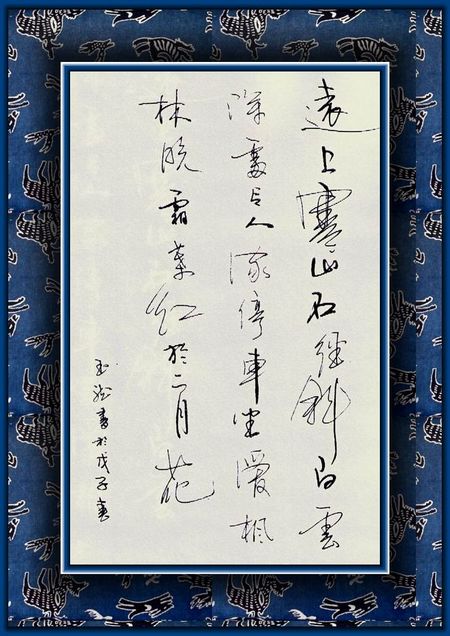 遠上寒山石徑斜白雲
深處有人家停車坐愛楓
林晚霜葉紅於二月花
玉書於戊子春